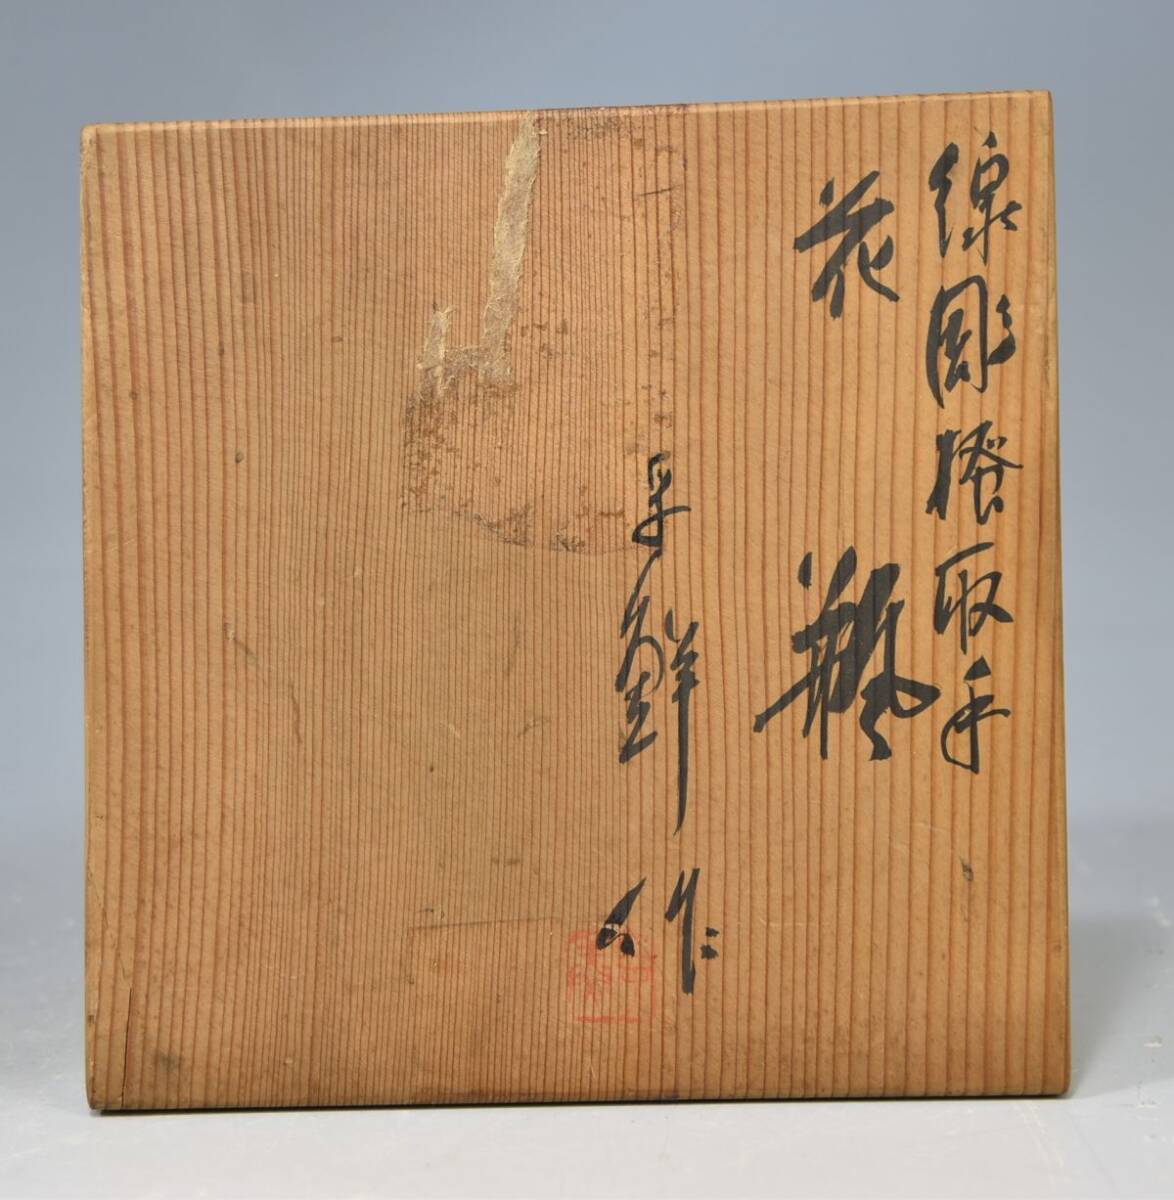 線彫掻取手
花瓶
平鮮作